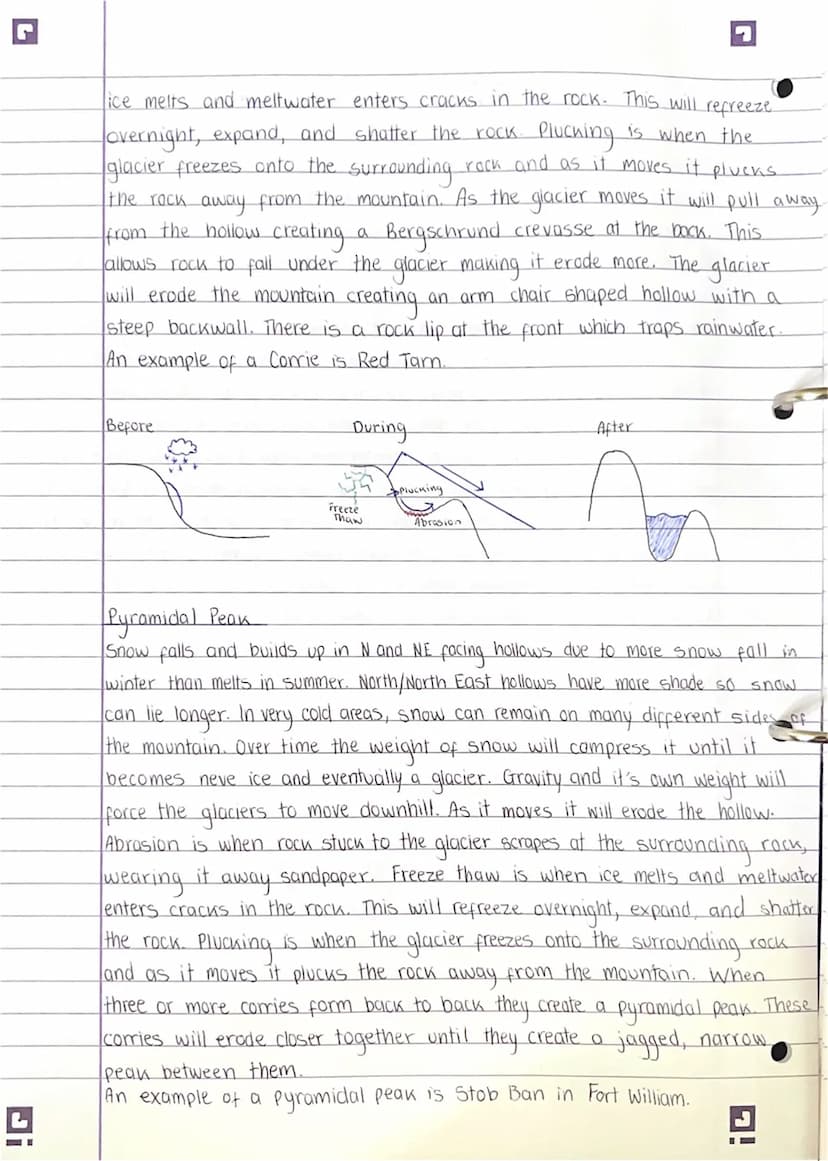 ice melts and meltwater enters cracks in the rock. This will refreeze
overnight, expand, and shatter the rock. Plucking is when the
glacier freezes onto the surrounding rock and as it moves it plucks
the rock away from the mountain. As the glacier moves it will pull away
from the hollow creating a Bergschrund crevasse at the back. This
allows rock to fall under the glacier making it erode more. The glacier
will erode the mountain creating an arm chair shaped hollow with a
steep backwall. There is a rock lip at the front which traps rainwater.
An example of a Corrie is Red Tarn.
Before
During
After
Plucking
Freeze
Thaw
Abrasion
Pyramidal Peak
Snow falls and builds up in N and NE facing hollows due to more snow fall in
winter than melts in summer. North/North East hollows have more shade so snow
can lie longer. In very cold areas, snow can remain on many different sides of
the mountain. Over time the weight of snow will compress it until it
becomes neve ice and eventually a glacier. Gravity and it's own weight will
force the glaciers to move downhill. As it moves it will erode the hollow.
Abrasion is when rock stuck to the glacier scrapes at the surrounding rock,
wearing it away sandpaper. Freeze thaw is when ice melts and meltwater
enters cracks in the rock. This will refreeze overnight, expand, and shatter
the rock. Plucking is when the glacier freezes onto the surrounding rock
and as it moves it plucks the rock away from the mountain. When
three or more corries form back to back they create a pyramidal peak. These
corries will erode closer together until they create a jagged, narrow
peak between them.
An example of a pyramidal peak is Stob Ban in Fort William.